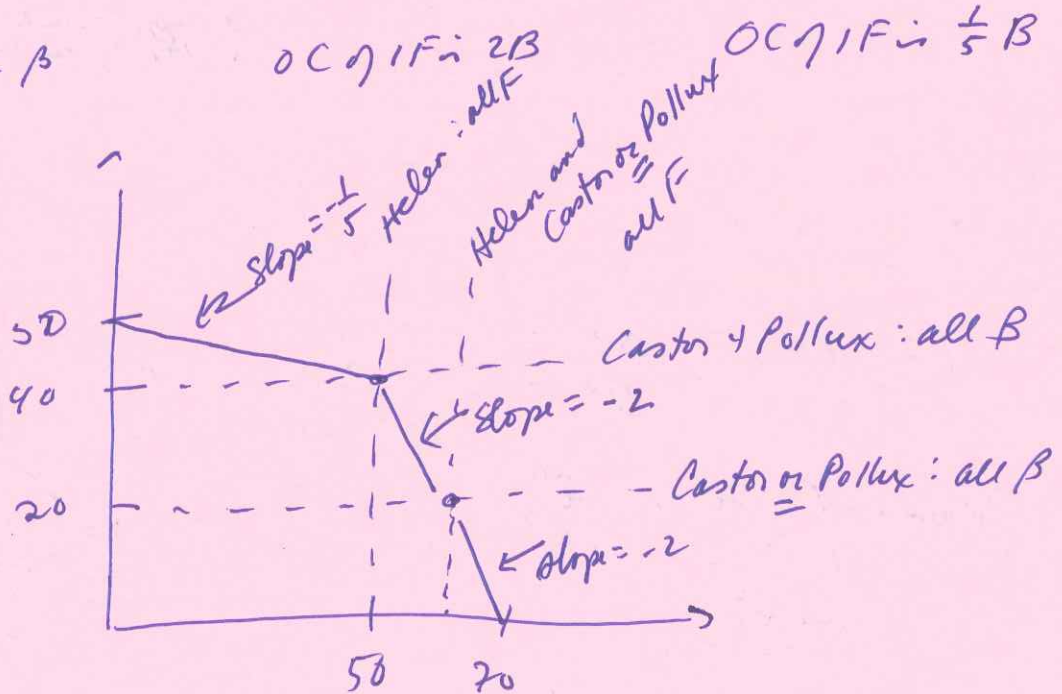 β
OC of 1F is 2B
OC of 1F is 1/5 B
Helen : all F
Helen and
Castor or Pollux
all F
slope = -1/5
50
Castor & Pollux : all B
40
slope = -2
Castor or Pollux : all B
20
slope = -2
50
70